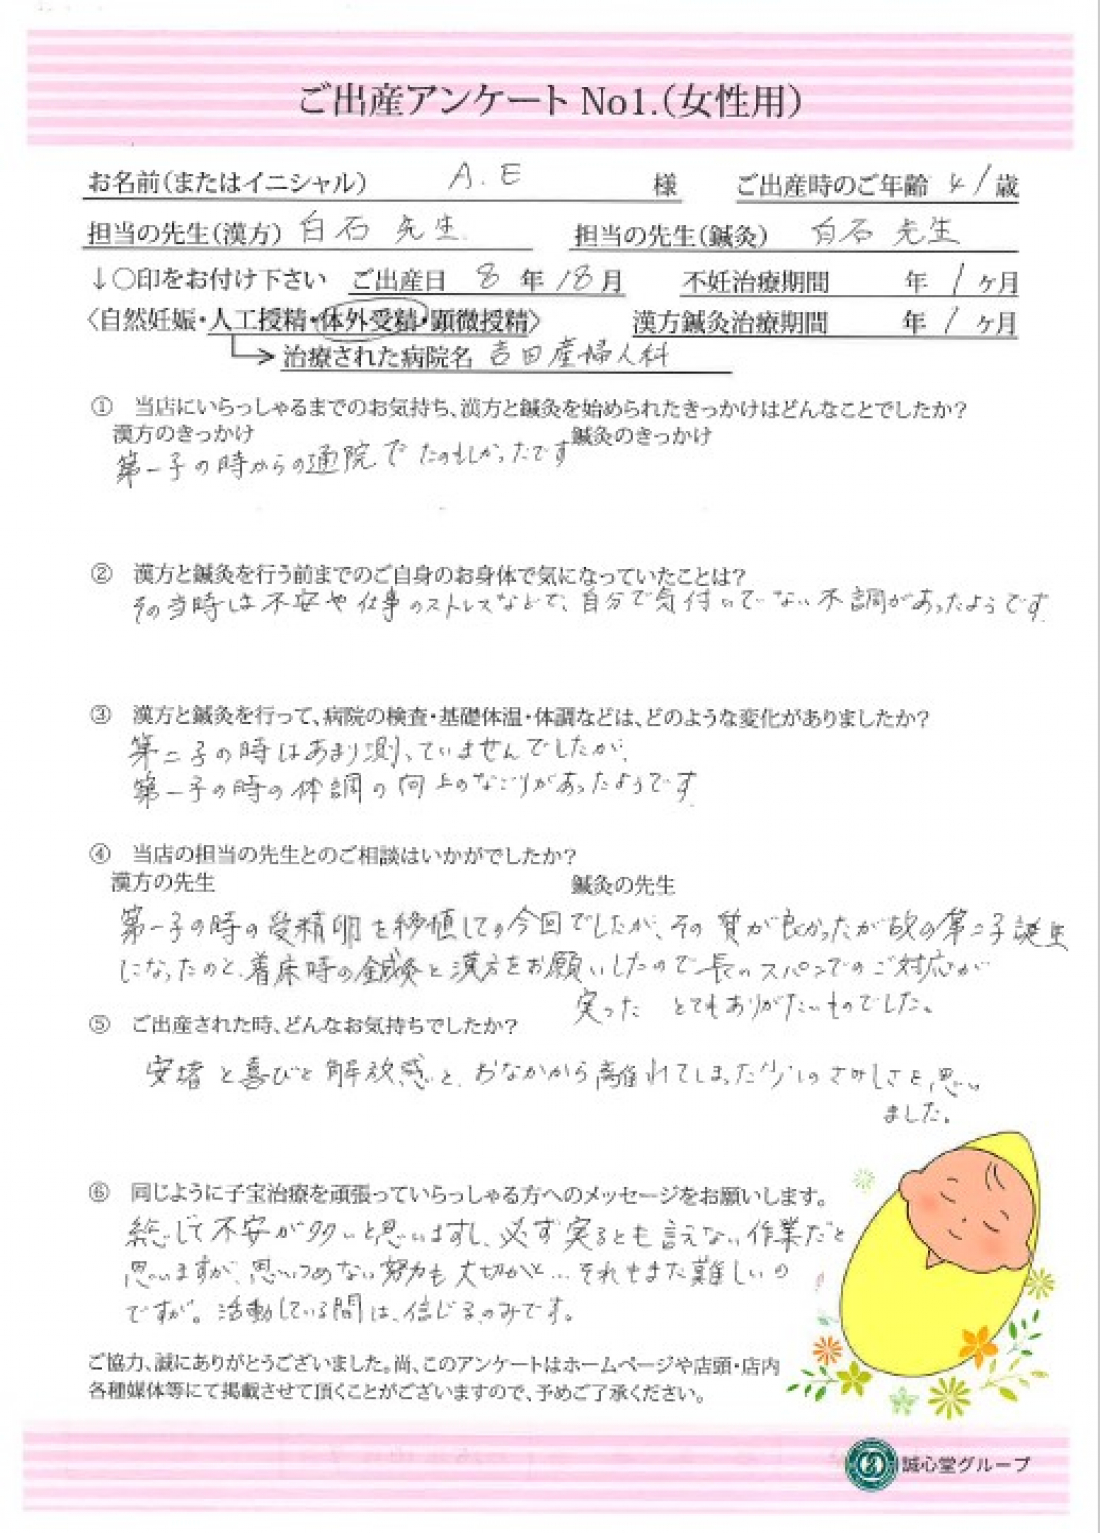 ご出産アンケート No1.(女性用)
お名前(またはイニシャル) A.E 様 ご出産時のご年齢 41歳
担当の先生(漢方) 白石 先生 担当の先生(鍼灸) 白石 先生
↓○印をお付け下さい ご出産日 8年 18月 不妊治療期間 年 1ヶ月
〈自然妊娠・人工授精・体外受精・顕微授精〉 漢方鍼灸治療期間 年 1ヶ月
治療された病院名 吉田産婦人科
① 当店にいらっしゃるまでのお気持ち、漢方と鍼灸を始められたきっかけはどんなことでしたか?
漢方のきっかけ 鍼灸のきっかけ
第一子の時からの通院で たのもしかったです
② 漢方と鍼灸を行う前までのご自身のお身体で気になっていたことは?
その当時は不安や仕事のストレスなどで、自分で気付いていない不調があったようです
③ 漢方と鍼灸を行って、病院の検査・基礎体温・体調などは、どのような変化がありましたか?
第二子の時はあまり測っていませんでしたが、
第一子の時の体調の向上のなごりがあったようです
④ 当店の担当の先生とのご相談はいかがでしたか?
漢方の先生 鍼灸の先生
第一子の時の受精卵を移植しての今回でしたが、その質が良かったが故の第二子誕生
になったのと、着床時の鍼灸と漢方をお願いしたので長のスパンでのご対応が
実った とてもありがたいものでした。
⑤ ご出産された時、どんなお気持ちでしたか?
安堵と喜びと解放感と、おなかから離れてしまった少しのさみしさを思い
ました。
⑥ 同じように子宝治療を頑張っていらっしゃる方へのメッセージをお願いします。
総じて不安が多いと思いますし、必ず実るとも言えない作業だと
思いますが、思いつめない努力も大切かと…それもまた難しいの
ですが。活動している間は、信じるのみです。
ご協力、誠にありがとうございました。尚、このアンケートはホームページや店頭・店内
各種媒体等にて掲載させて頂くことがございますので、予めご了承ください。
誠心堂グループ